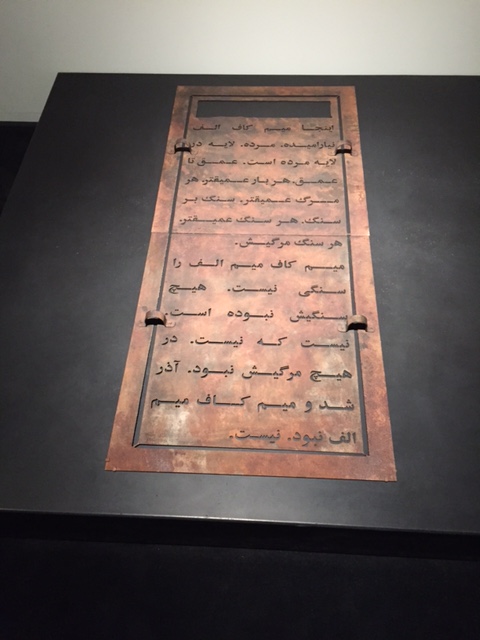 اینجا میم کاف الف
نیارامیده. مرده. لایه در
لایه مرده است. عمق تا
عمق. هر بار عمیقتر. هر
مرگ عمیقتر. سنگ بر
سنگ. هر سنگ عمیقتر.
هر سنگ مرگیش.
میم کاف میم الف را
سنگی نیست. هیچ
سنگیش نبوده است.
نیست که نیست. در
هیچ مرگیش نبود. آذر
شد و میم کاف میم
الف نبود. نیست.